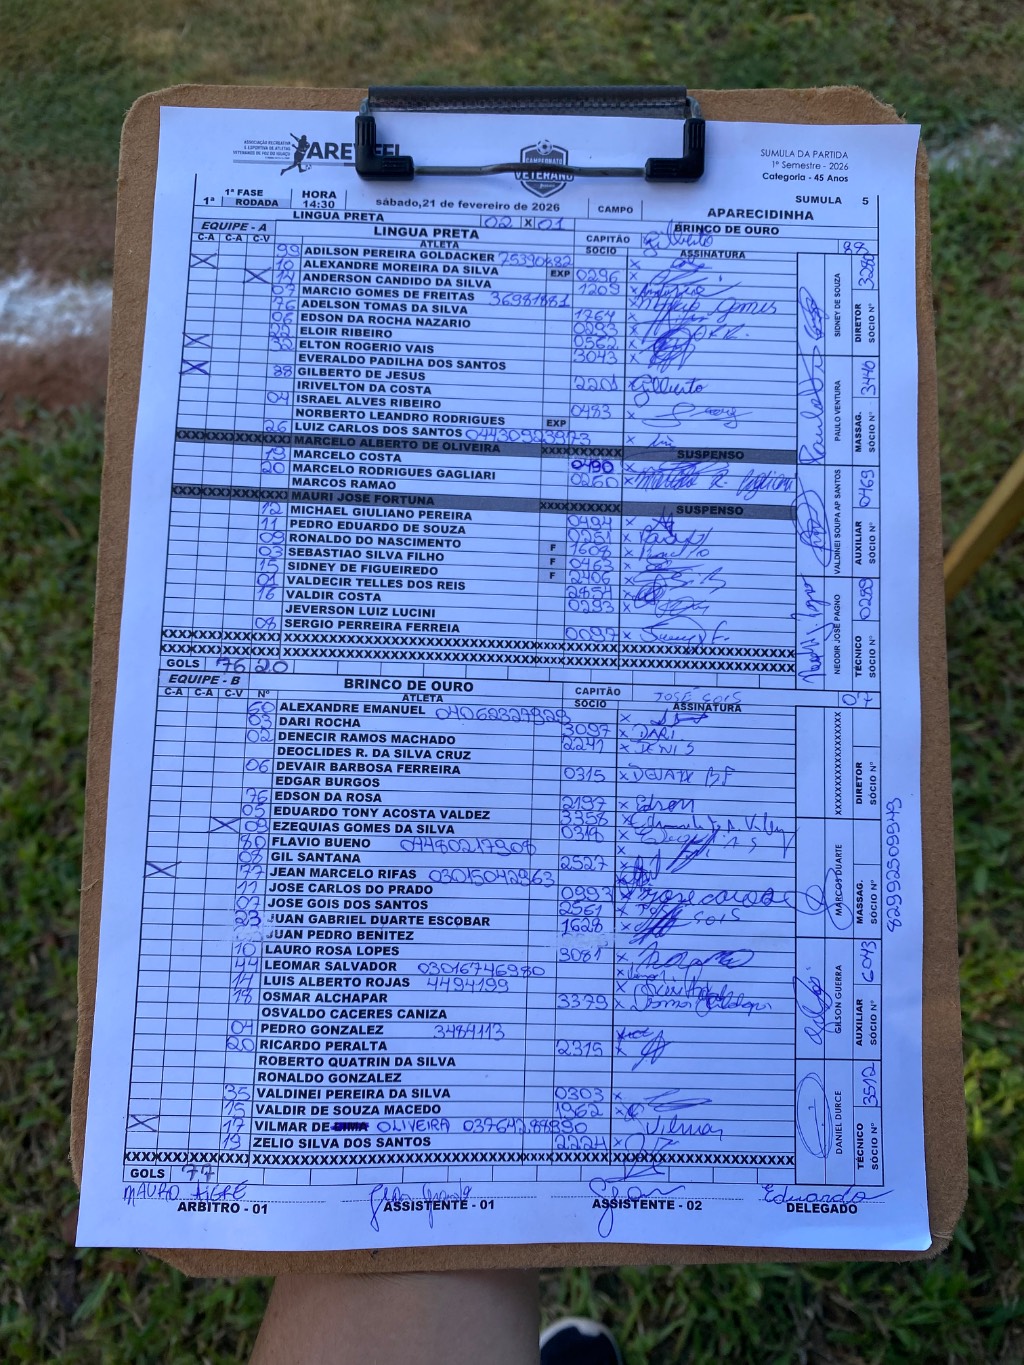 ASSOCIAÇÃO RECREATIVA
E ESPORTIVA DE ATLETAS
VETERANOS DE FOZ DO IGUAÇU
CAMPEONATO
VETERANO
SUMULA DA PARTIDA
1º Semestre - 2026
Categoria - 45 Anos
1ª 1ª FASE RODADA HORA 14:30 sábado,21 de fevereiro de 2026 CAMPO APARECIDINHA SUMULA 5
LINGUA PRETA 02 X 01 BRINCO DE OURO
EQUIPE - A LINGUA PRETA CAPITÃO Gilberto 88
C-A C-A C-V ATLETA SOCIO ASSINATURA
99 ADILSON PEREIRA GOLDACKER 75390882 x
X 10 ALEXANDRE MOREIRA DA SILVA EXP 0296 x
X 14 ANDERSON CANDIDO DA SILVA 1209 x
07 MARCIO GOMES DE FREITAS 36981881 x Marcio Gomes
76 ADELSON TOMAS DA SILVA 1764 x
06 EDSON DA ROCHA NAZARIO 0293 x
22 ELOIR RIBEIRO 0562 x
X 32 ELTON ROGERIO VAIS 3043 x
EVERALDO PADILHA DOS SANTOS
X 88 GILBERTO DE JESUS 2201 x Gilberto
IRIVELTON DA COSTA
04 ISRAEL ALVES RIBEIRO 0483 x
NORBERTO LEANDRO RODRIGUES EXP
26 LUIZ CARLOS DOS SANTOS 04430923973 x
XXXXXXXXXXXXXXXXX MARCELO ALBERTO DE OLIVEIRA XXXXXXXXXX SUSPENSO
19 MARCELO COSTA 0490
20 MARCELO RODRIGUES GAGLIARI 0260 x
MARCOS RAMAO
XXXXXXXXXXXXXXXXX MAURI JOSE FORTUNA XXXXXXXXXX SUSPENSO
12 MICHAEL GIULIANO PEREIRA 0494 x
11 PEDRO EDUARDO DE SOUZA 0251 x
09 RONALDO DO NASCIMENTO F 1608 x
03 SEBASTIAO SILVA FILHO F 0463 x
15 SIDNEY DE FIGUEIREDO F 2406 x
01 VALDECIR TELLES DOS REIS 2854 x
16 VALDIR COSTA 0293 x
JEVERSON LUIZ LUCINI
08 SERGIO PERREIRA FERREIA 0097 x
GOLS 76 20
SIDNEY DE SOUZA DIRETOR SOCIO Nº 3280
PAULO VENTURA MASSAG. SÓCIO Nº 3440
VALDINEI SOUPA AP SANTOS AUXILIAR SÓCIO Nº 0469
NEODIR JOSE PAGNO TÉCNICO SÓCIO Nº 0289
EQUIPE - B BRINCO DE OURO CAPITÃO JOSÉ GOIS 07
C-A C-A C-V Nº ATLETA SOCIO ASSINATURA
60 ALEXANDRE EMANUEL 04062327929 x
03 DARI ROCHA 3097 x DARI
02 DENECIR RAMOS MACHADO 2241 x DENIS
DEOCLIDES R. DA SILVA CRUZ
06 DEVAIR BARBOSA FERREIRA 0315 x DEVAIR BF
EDGAR BURGOS
76 EDSON DA ROSA 2197 x Edson
05 EDUARDO TONY ACOSTA VALDEZ 3358 x
X 09 EZEQUIAS GOMES DA SILVA 0318 x
80 FLAVIO BUENO 04480217908 x
08 GIL SANTANA 2527 x
X 77 JEAN MARCELO RIFAS 03015042963 x
11 JOSE CARLOS DO PRADO 0993 x
07 JOSE GOIS DOS SANTOS 2561 x GOIS
23 JUAN GABRIEL DUARTE ESCOBAR 1628 x
JUAN PEDRO BENITEZ
10 LAURO ROSA LOPES 3081 x
44 LEOMAR SALVADOR 03016746980 x
14 LUIS ALBERTO ROJAS 4494199 x
18 OSMAR ALCHAPAR 3379 x
OSVALDO CACERES CANIZA
04 PEDRO GONZALEZ 3484113
20 RICARDO PERALTA 2315 x
ROBERTO QUATRIN DA SILVA
RONALDO GONZALEZ
35 VALDINEI PEREIRA DA SILVA 0303 x
15 VALDIR DE SOUZA MACEDO 1962 x
X 17 VILMAR DE OLIVEIRA 03764288890 Vilmar
19 ZELIO SILVA DOS SANTOS 2224 x
GOLS 77
XXXXXXXXXXXXXXX DIRETOR SÓCIO Nº
MARCOS DUARTE MASSAG. SÓCIO Nº 82992509949
GILSON GUERRA AUXILIAR SÓCIO Nº 6043
DANIEL DURCE TÉCNICO SÓCIO Nº 3512
MAURO TIGRE Eduardo
ARBITRO - 01 ASSISTENTE - 01 ASSISTENTE - 02 DELEGADO